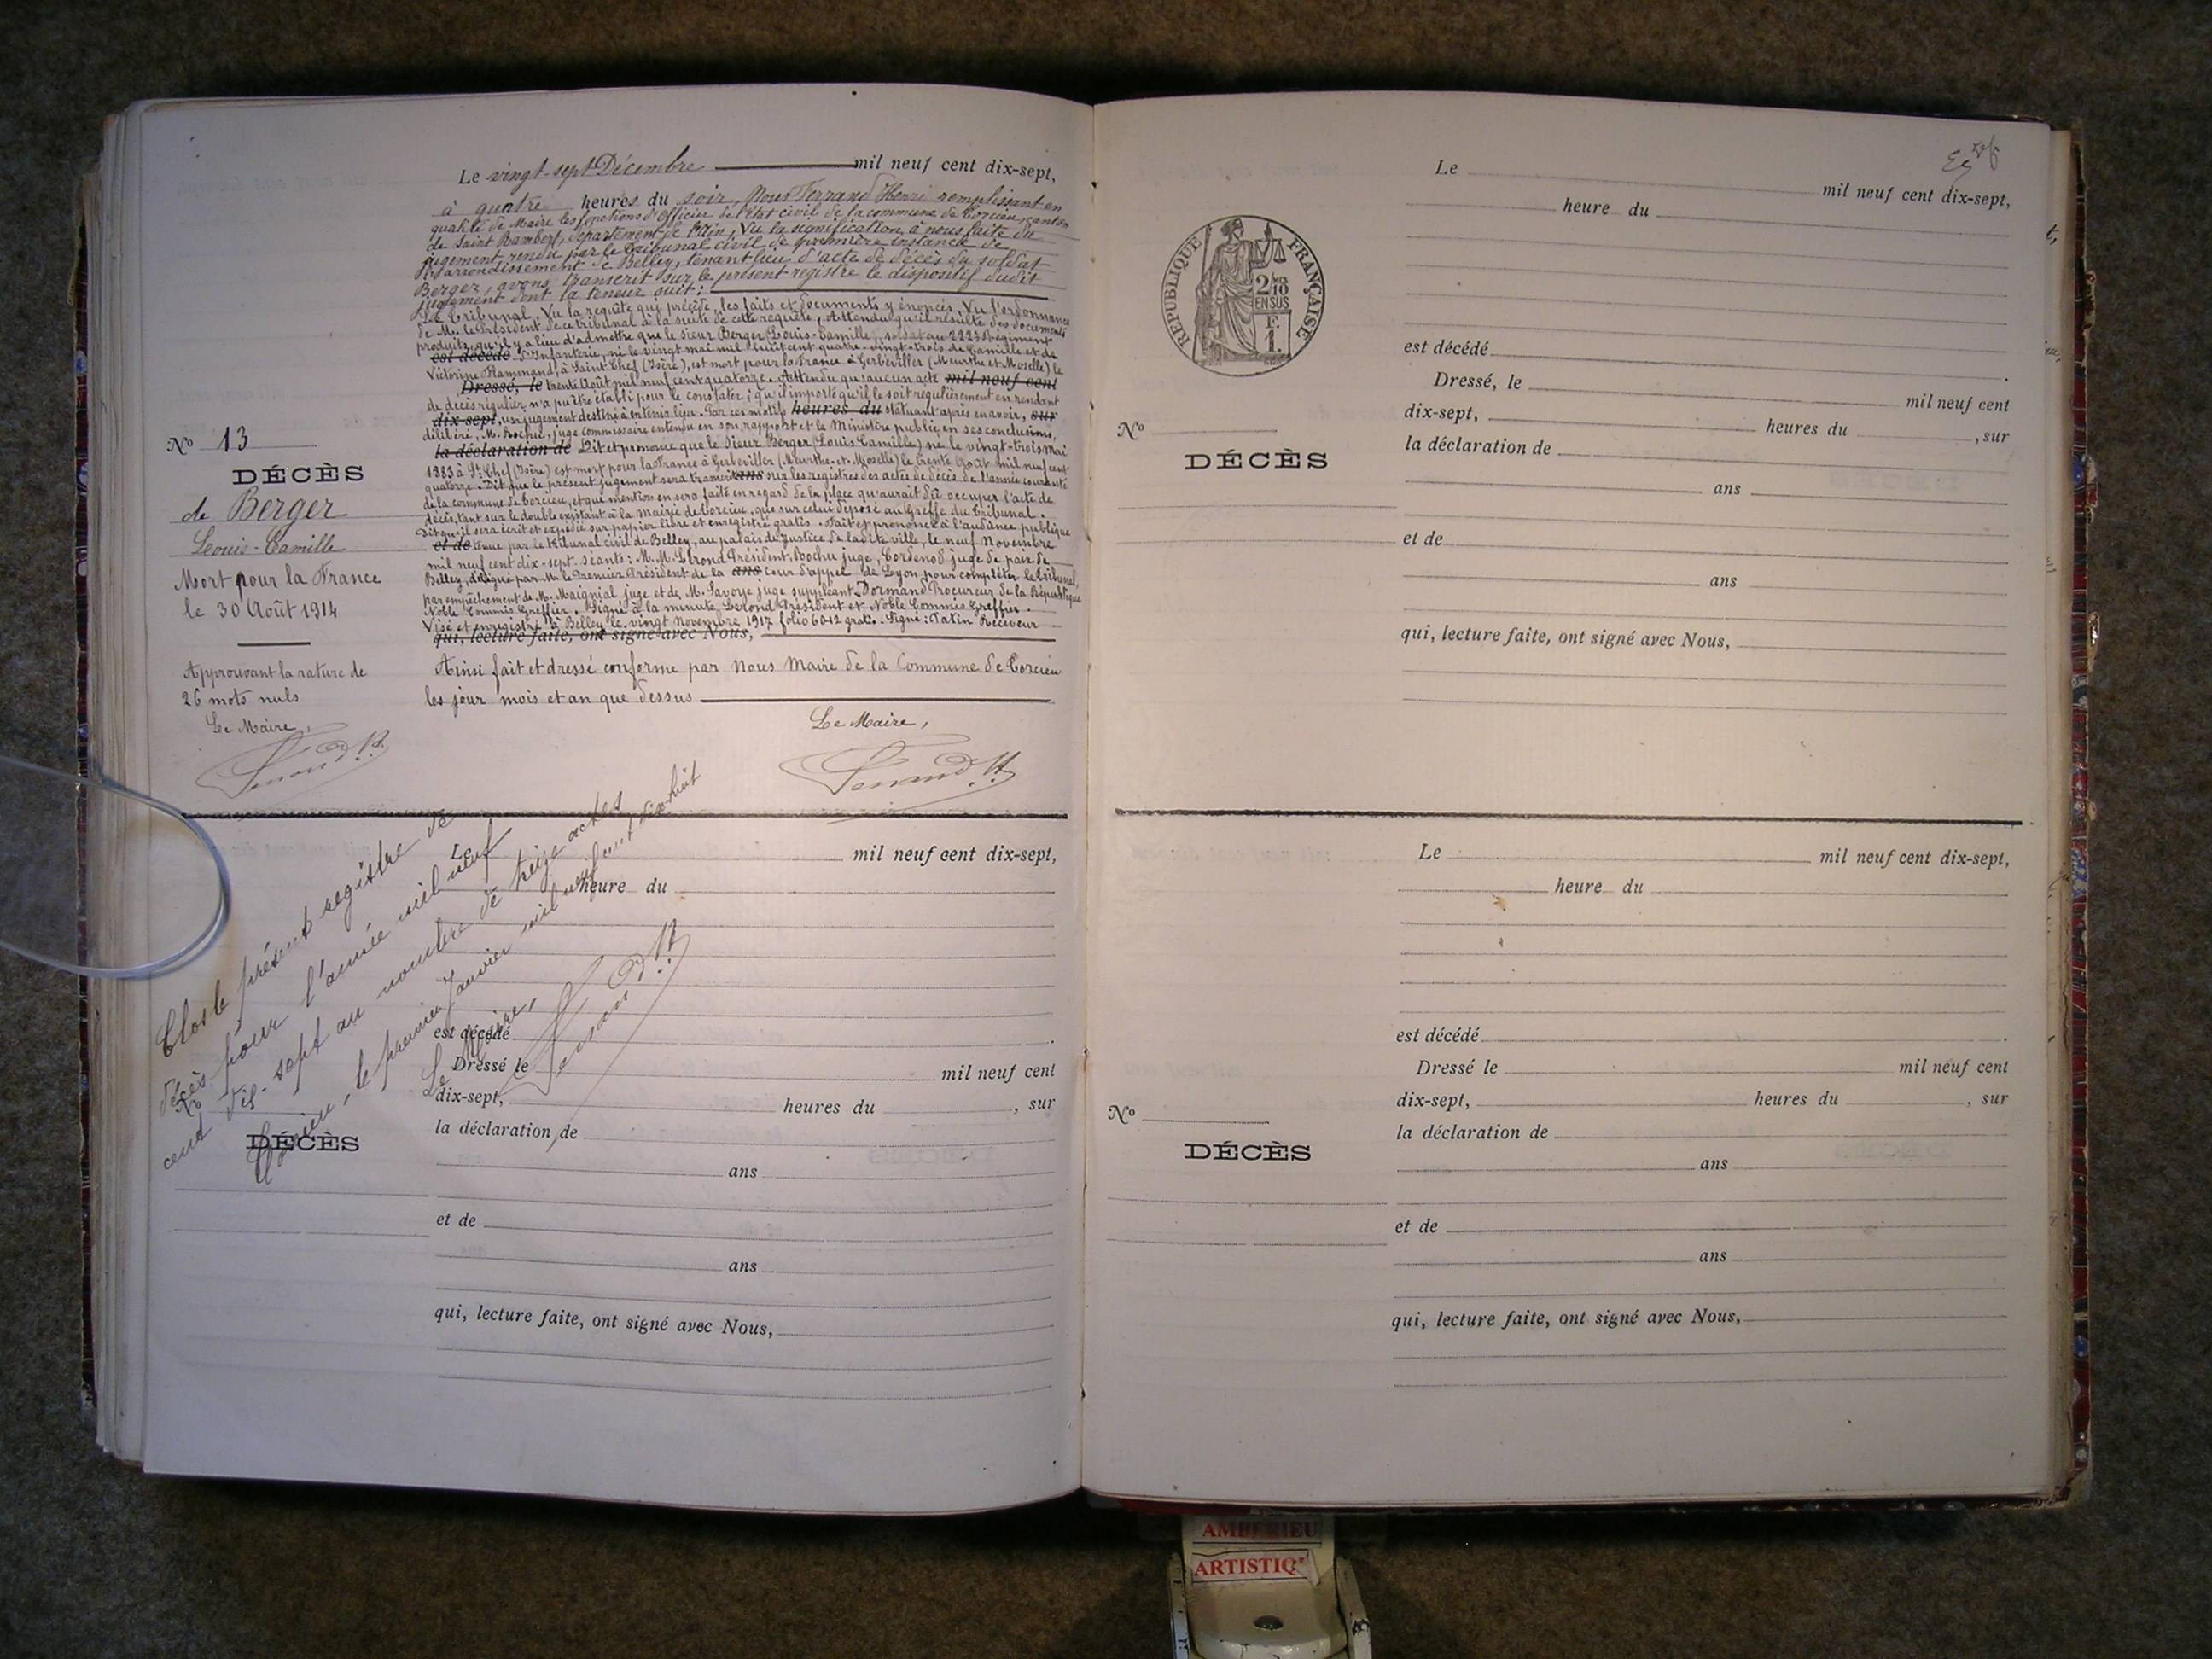 Le vingt-sept Décembre mil neuf cent dix-sept,
à quatre heures du soir, Nous Ferrand Henri remplissant en
qualité de Maire les fonctions d'Officier de l'Etat civil de la commune de Torcieu, canton
de Saint Rambert, département de l'Ain, Vu la signification à nous faite du
jugement rendu par le Tribunal civil de première instance de
l'arrondissement de Belley, tenant lieu d'acte de décès du soldat
Berger, avons transcrit sur le présent registre le dispositif dudit
jugement dont la teneur suit :
Le Tribunal, Vu la requête qui précède, les faits et documents y énoncés, Vu l'ordonnance
de M. le Président de ce tribunal à la suite de cette requête, Attendu qu'il résulte des documents
produits, qu'il y a lieu d'admettre que le sieur Berger (Louis-Camille), soldat au 222è Régiment
est décédé d'Infanterie, né le vingt mai mil huit cent quatre-vingt-trois de Camille et de
Victorine Flammand, à Saint Chef (Isère), est mort pour la France à Gerbéviller (Meurthe et Moselle) le
Dressé, le trente Août mil neuf cent quatorze. Attendu qu'aucun acte mil neuf cent
de décès régulier n'a pu être établi pour le constater ; qu'il importe qu'il le soit régulièrement en rendant
dix-sept, un jugement destiné à en tenir lieu. Par ces motifs heures du statuant après en avoir, sur
délibéré, M. Rochu, juge commissaire entendu en son rapport et le Ministère public en ses conclusions,
la déclaration de Dit et prononce que le Sieur Berger (Louis Camille) né le vingt-trois mai
1883 à St Chef (Isère) est mort pour la France à Gerbéviller (Meurthe-et-Moselle) le trente Août mil neuf cent
quatorze. Dit que le présent jugement sera transcrit ans sur les registres des actes de décès de l'année courante
de la commune de Torcieu, et que mention en sera faite en regard de la place qu'aurait dû occuper l'acte de
décès, tant sur le double existant à la mairie de Torcieu, que sur celui déposé au Greffe du Tribunal.
Dit qu'il sera écrit et expédié sur papier libre et enregistré gratis. Fait et prononcé à l'audience publique
et de tenue par le tribunal civil de Belley, au palais de Justice de ladite ville, le neuf Novembre
mil neuf cent dix-sept. Séants : M.M. Lerond Président, Rochu juge, Cordenod juge de paix de
Belley, délégué par M. le Premier Président de la ans cour d'appel de Lyon pour compléter le tribunal,
par empêchement de M. Maignial juge et de M. Savoye juge suppléant, Dormand Procureur de la République
Noble Commis Greffier. Signé à la minute, Lerond Président et Noble Commis Greffier.
Visé et enregistré à Belley le vingt Novembre 1917 folio 60 12 gratis. Signé : Tatin Receveur
qui, lecture faite, ont signé avec Nous,
Ainsi fait et dressé conforme par Nous Maire de la Commune de Torcieu
les jour mois et an que dessus
Le Maire,
Ferrand H.
No 13
DÉCÈS
de Berger
Louis-Camille
Mort pour la France
le 30 Août 1914
Approuvant la rature de
26 mots nuls
Le Maire,
Ferrand H.
Clos le présent registre de
décès pour l'année mil neuf
cent dix-sept au nombre de treize actes
Torcieu, le premier Janvier mil neuf cent dix huit
Le Maire,
Ferrand H.
Le mil neuf cent dix-sept,
heure du
est décédé
Dressé le mil neuf cent
dix-sept, heures du , sur
la déclaration de
ans
et de
ans
qui, lecture faite, ont signé avec Nous,
No
DÉCÈS
RÉPUBLIQUE FRANÇAISE
2/10
EN SUS
F.
1.
Le mil neuf cent dix-sept,
heure du
est décédé
Dressé, le mil neuf cent
dix-sept, heures du , sur
la déclaration de
ans
et de
ans
qui, lecture faite, ont signé avec Nous,
No
DÉCÈS
Le mil neuf cent dix-sept,
heure du
est décédé
Dressé le mil neuf cent
dix-sept, heures du , sur
la déclaration de
ans
et de
ans
qui, lecture faite, ont signé avec Nous,
No
DÉCÈS
AMBERIEU
ARTISTIQ'